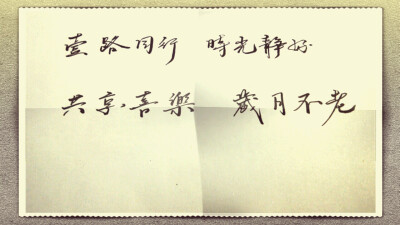 壹路同行 時光靜好
共享喜樂 歲月不老